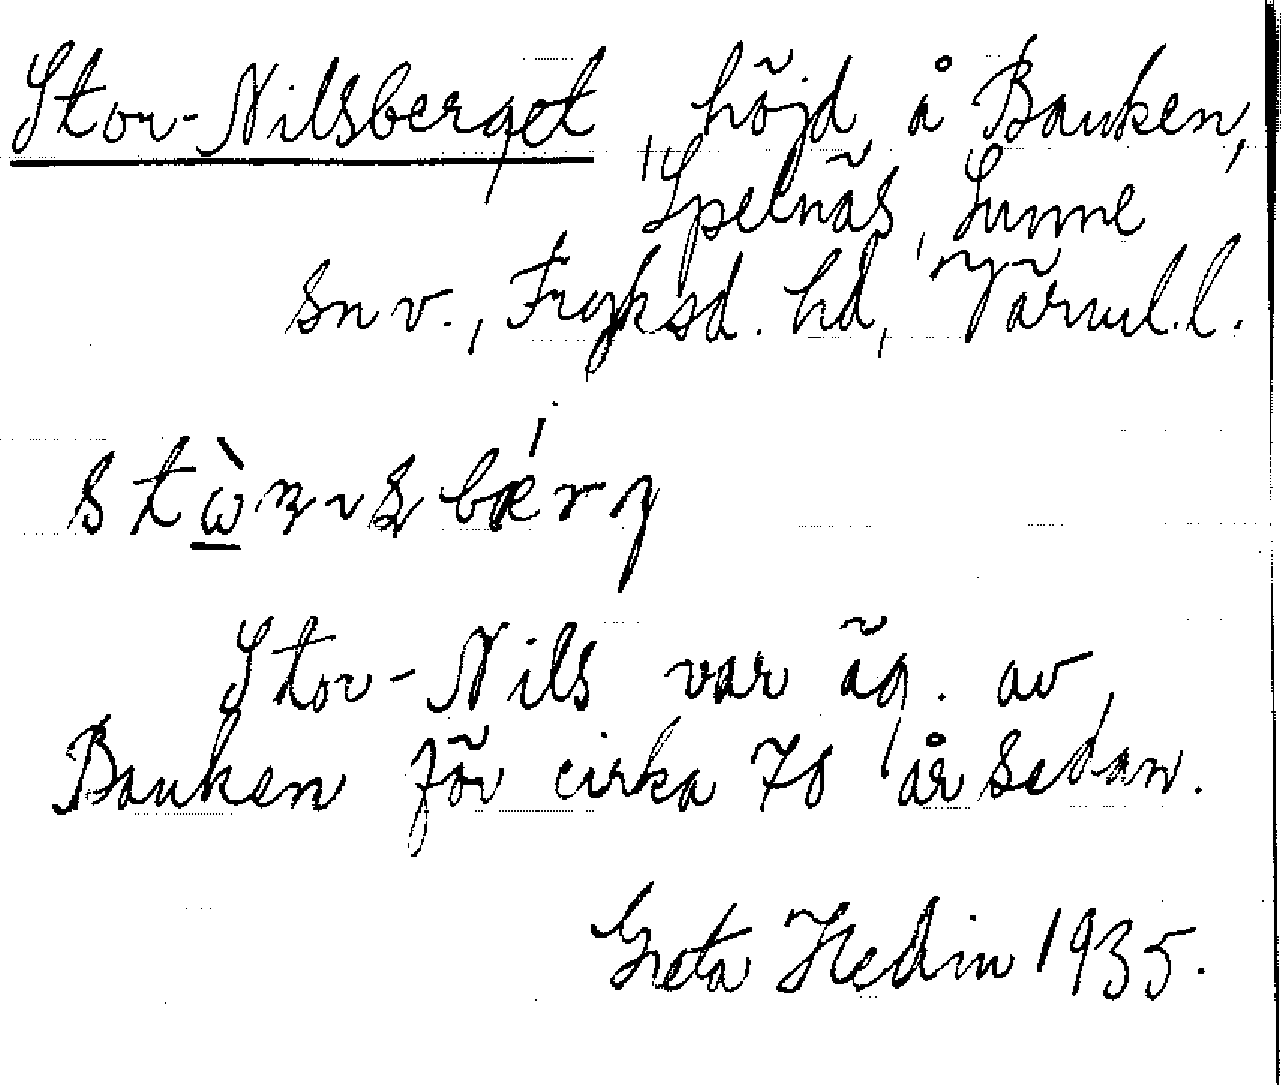 Stor-Nilsberget, höjd å Bauken,
Spelnäs, Sunne
sn v., Fryksd. hd, Värml.l.
Stor-Nils var äg. av
Bauken för cirka 70 år sedan.
Greta Hedin 1935.